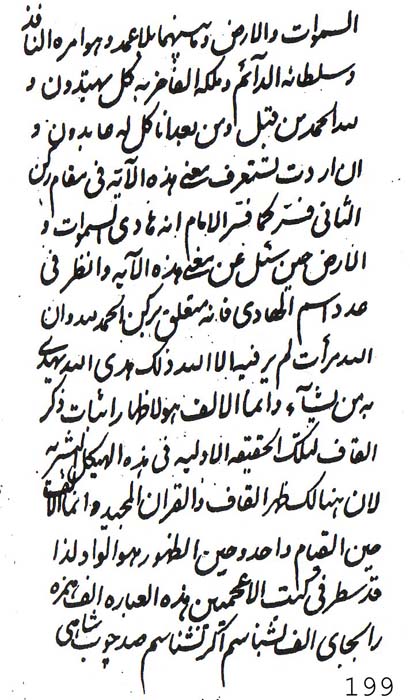 السموات والارض وما بينهما بلا عمد وهو امره النافذ
وسلطانه الدآئم وملكه الفاخر به كل يهتدون و
لله الحمد من قبل ومن بعد انا كل له عابدون و
ان اردت لتعرف معني هذه الآية في مقام ركن
الثاني فسّر كما فسّر الامام انه هادي السموات و
الارض حين سئل عن معني هذه الآيه وانظر في
عدد اسم الهادي فانه متعلق بركن الحمد لله وان
الله مرأت لم ير فيه الا الله ذلك هدي الله يهدي
به من يشآء وانما الالف هو لاظهار اثبات ذكر
القاف لتلك الحقيقه الاوليه في هذه الهيكل البشريه
لان هنالك ظهر القاف والقران المجيد وانما الالف
حين القيام واحد وحين الظهور هو الواو لذا
قد سطر في كتب الاعجمين هذه العباره الف همزه
را بجاي الف بشناسم اگر نشناسم صد چوب شاهي
199